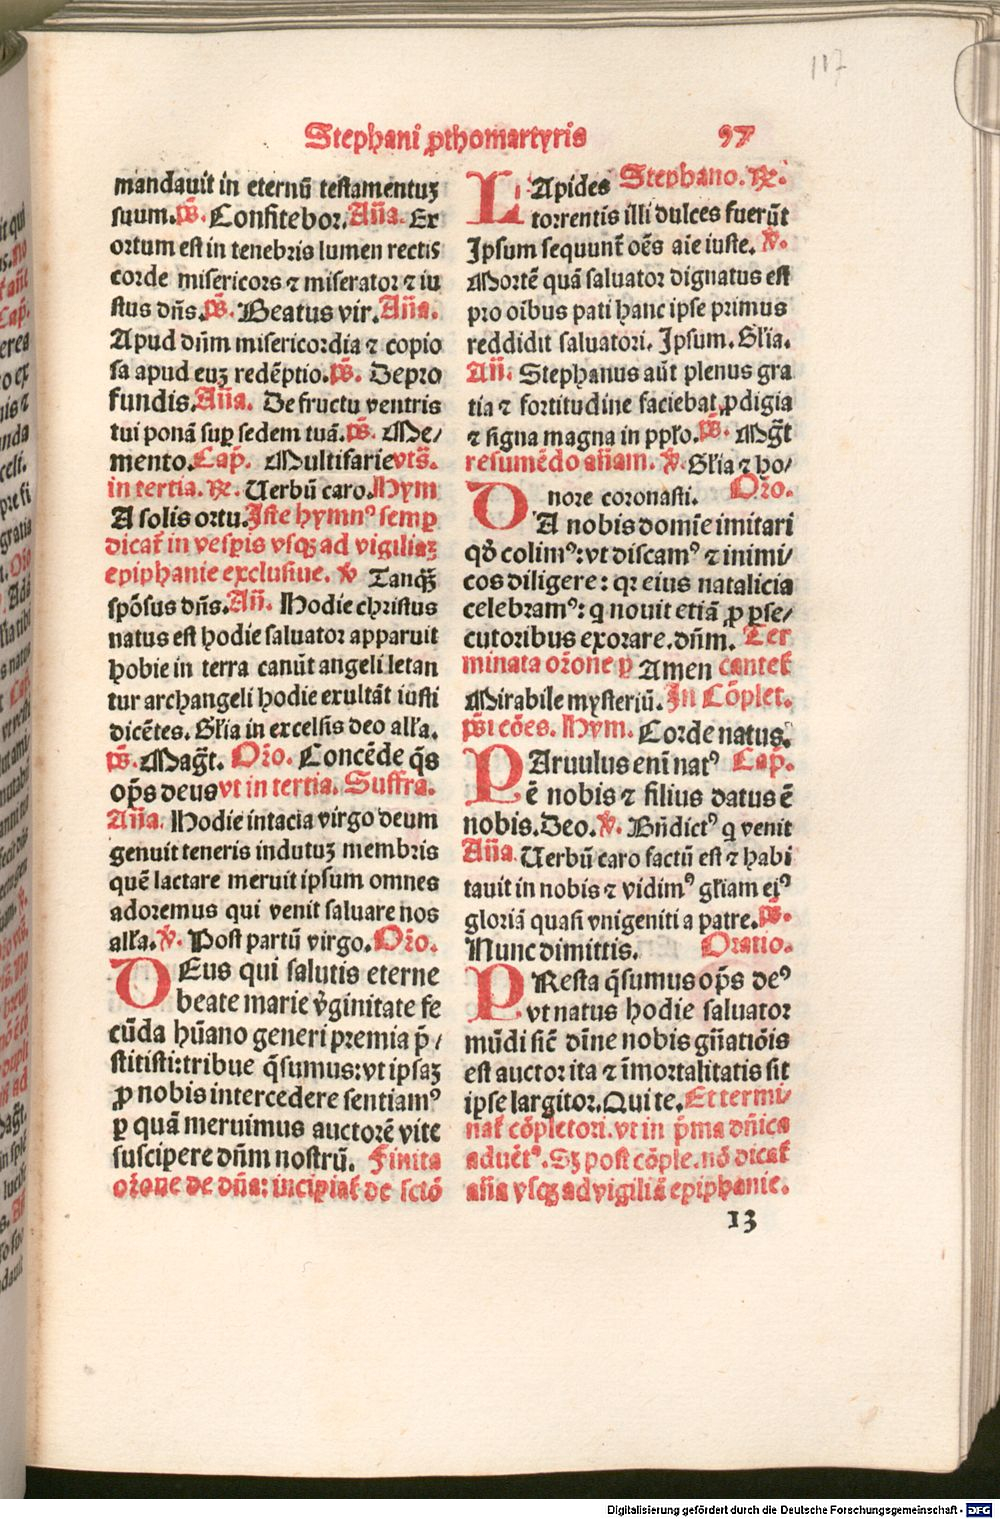 117
Stephani ꝓthomartyris 97
mandauit in eternū testamentuꝫ
suum. p̄s. Confitebor. Aña. Ex
ortum est in tenebris lumen rectis
corde misericors ⁊ miserator ⁊ iu
stus dñs. p̄s. Beatus vir. Aña.
Apud dn̄m misericordia ⁊ copio
sa apud euꝫ redēptio. p̄s. De pro
fundis. Aña. De fructu ventris
tui ponā suꝑ sedem tuā. p̄s. Me/
mento. Cap̄. Multifarie vts̄.
in tertia. ℞. Uerbū caro. Hym
A solis ortu. Iste hymnꝰ semꝑ
dicat̄ in vesꝑis vsqꝫ ad vigiliaꝫ
epiphanie exclusiue. ℣ Tanqꝫ̄
spōsus dñs. Añ. Hodie christus
natus est hodie saluator apparuit
hobie in terra canūt angeli letan
tur archangeli hodie exultāt iusti
dicētes. Gl̄ia in excelsis deo alr̄a.
p̄s. Maḡt. Or̄o. Concēde q̄s
op̄s deus vt in tertia. Suffra.
Aña. Hodie intacia virgo deum
genuit teneris indutuꝫ membris
quē lactare meruit ipsum omnes
adoremus qui venit saluare nos
alr̄a. ℣. Post partū virgo. Or̄o.
DEus qui salutis eterne
beate marie v̄ginitate fe
cūda hūano generi premia p̄/
stitisti: tribue q̄sumus: vt ipsaꝫ
ꝓ nobis intercedere sentiamꝰ
ꝑ quā meruimus auctorē vite
suscipere dn̄m nostrū. Finita
or̄one de dn̄a: incipiat̄ de sctō
Stephano. ℞.
LApides
torrentis illi dulces fuerūt
Ipsum sequunt̄ oēs aīe iuste. ℣.
Mortē quā saluator dignatus est
pro oībus pati hanc ipse primus
reddidit saluatori. Ipsum. Gl̄ia.
Añ. Stephanus aūt plenus gra
tia ⁊ fortitudine faciebat ꝓdigia
⁊ signa magna in ppl̄o. p̄s. Mḡt
resumēdo añam. ℣. Gl̄ia ⁊ ho/
nore coronasti. Or̄o.
DA nobis domīe imitari
qd̄ colimꝰ: vt discamꝰ ⁊ inimi/
cos diligere: qꝛ eius natalicia
celebramꝰ: q nouit etiā ꝓ ꝑse/
cutoribus exorare. dn̄m. Ter
minata or̄one ꝑ Amen cantet̄
Mirabile mysteriū. In Cōplet.
p̄si cōes. Hym. Corde natus.
PAruulus enī natꝰ Cap̄.
ē nobis ⁊ filius datus ē
nobis. Deo. ℣. Bñdictꝰ q venit
Aña. Uerbū caro factū est ⁊ habi
tauit in nobis ⁊ vidimꝰ gl̄iam eiꝰ
gloriā quasi vnigeniti a patre. p̄s.
Nunc dimittis. Oratio.
PResta q̄sumus op̄s deꝰ
vt natus hodie saluator
mūdi sic̄ dīne nobis gn̄atiōis
est auctor ita ⁊ īmortalitatis sit
ipse largitor. Qui te. Et termi/
nat̄ cōpletori. vt in p̄ma dn̄ica
aduētꝰ. Sꝫ post cōple. nō dicat̄
añā vsqꝫ ad vigiliā epiphanie.
13
Digitalisierung gefördert durch die Deutsche Forschungsgemeinschaft - DFG